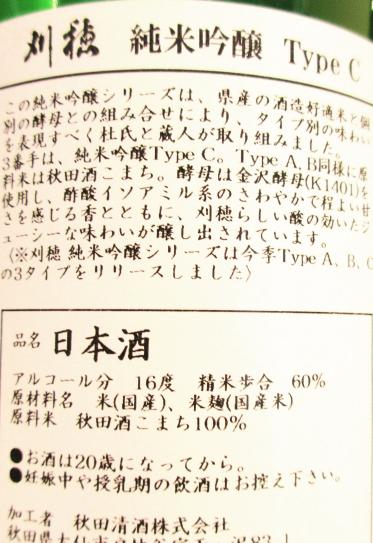 刈穂 純米吟醸 Type C
この純米吟醸シリーズは、県産の酒造好適米と個
別の酵母との組み合せにより、タイプ別の味わい
を表現すべく杜氏と蔵人が取り組みました。
3番手は、純米吟醸Type C。Type A、B同様に原
料米は秋田酒こまち。酵母は金沢酵母(K1401)を
使用し、酢酸イソアミル系のさわやかで程よい甘
さを感じる香とともに、刈穂らしい酸の効いたジ
ューシーな味わいが醸し出されています。
〈※刈穂 純米吟醸シリーズは今季Type A、B、C
の3タイプをリリースしました〉
品名 日本酒
アルコール分 16度 精米歩合 60%
原材料名 米(国産)、米麹(国産米)
原料米 秋田酒こまち100%
●お酒は20歳になってから。
●妊娠中や授乳期の飲酒はお控え下さい。
加工者 秋田清酒株式会社